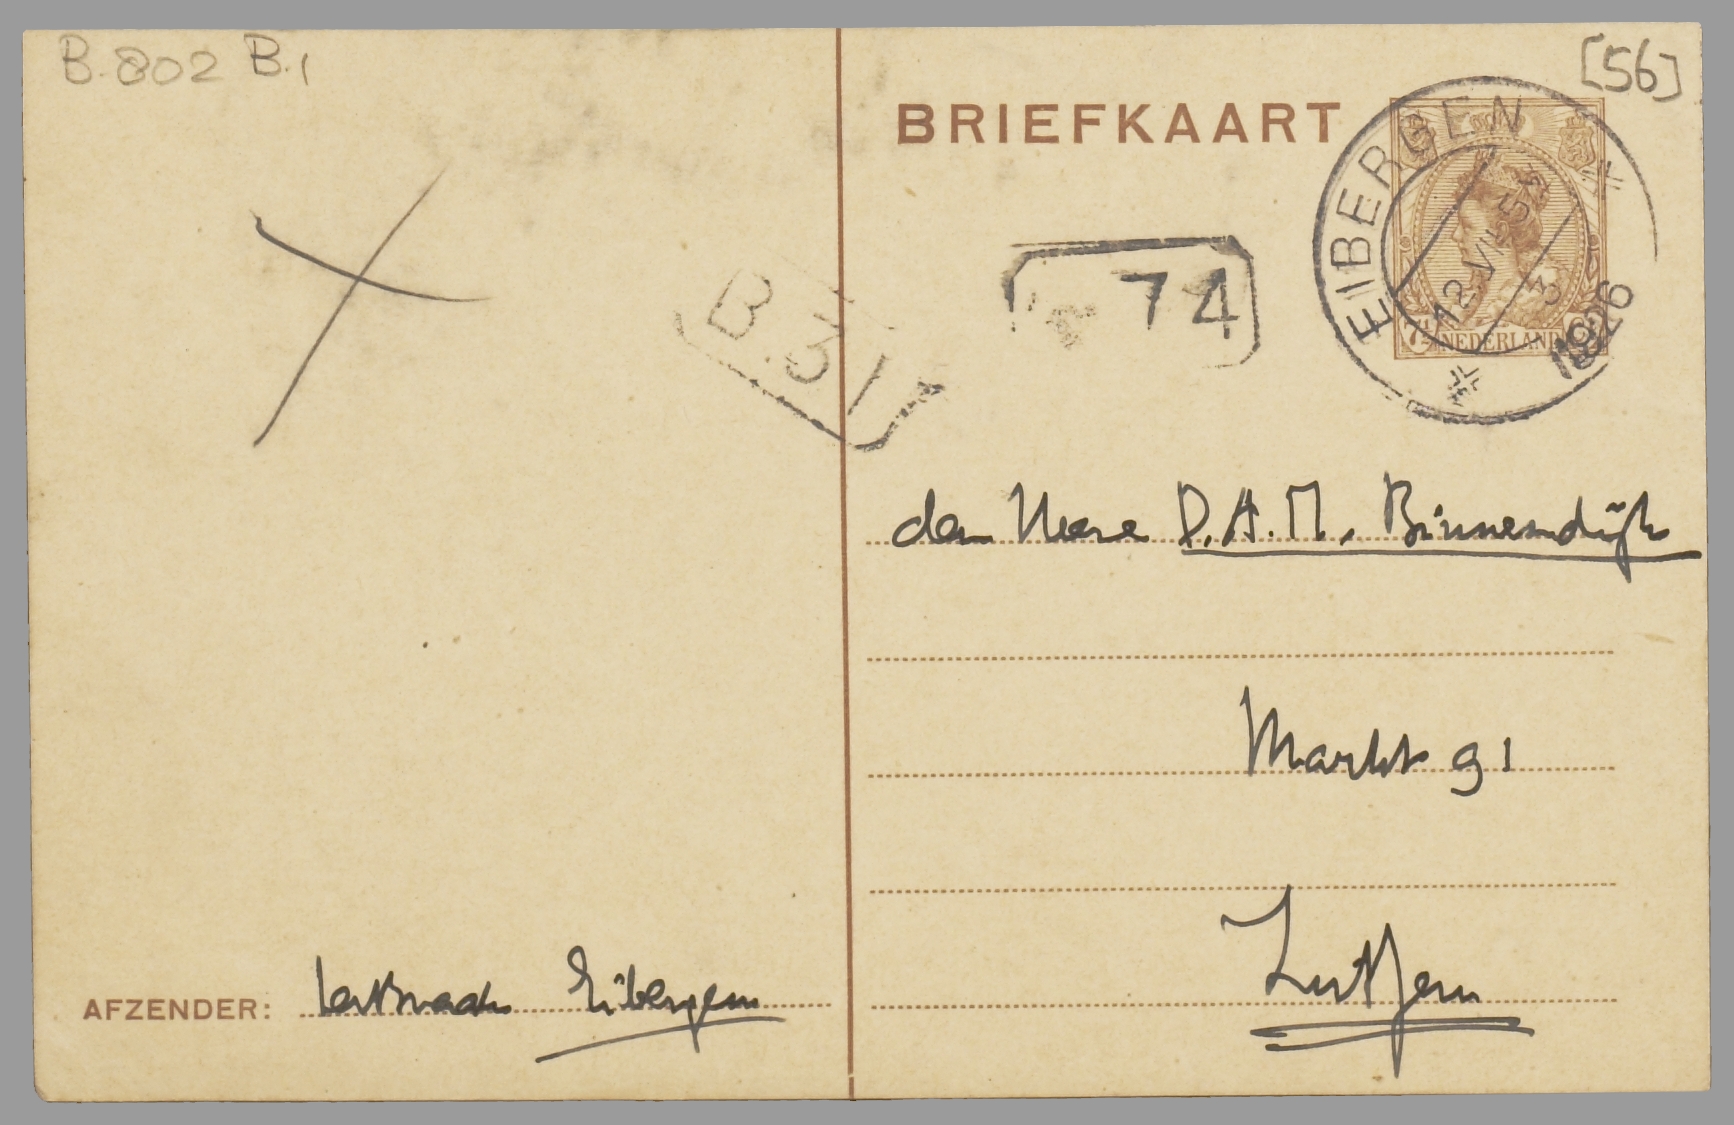 B.802 B.1
[56]
BRIEFKAART
EIBERGEN
1926
NEDERLAND
74
B.31
den Heere D.A.M. Binnendijk
Markt 91
Zutfen
AFZENDER: Eibergen